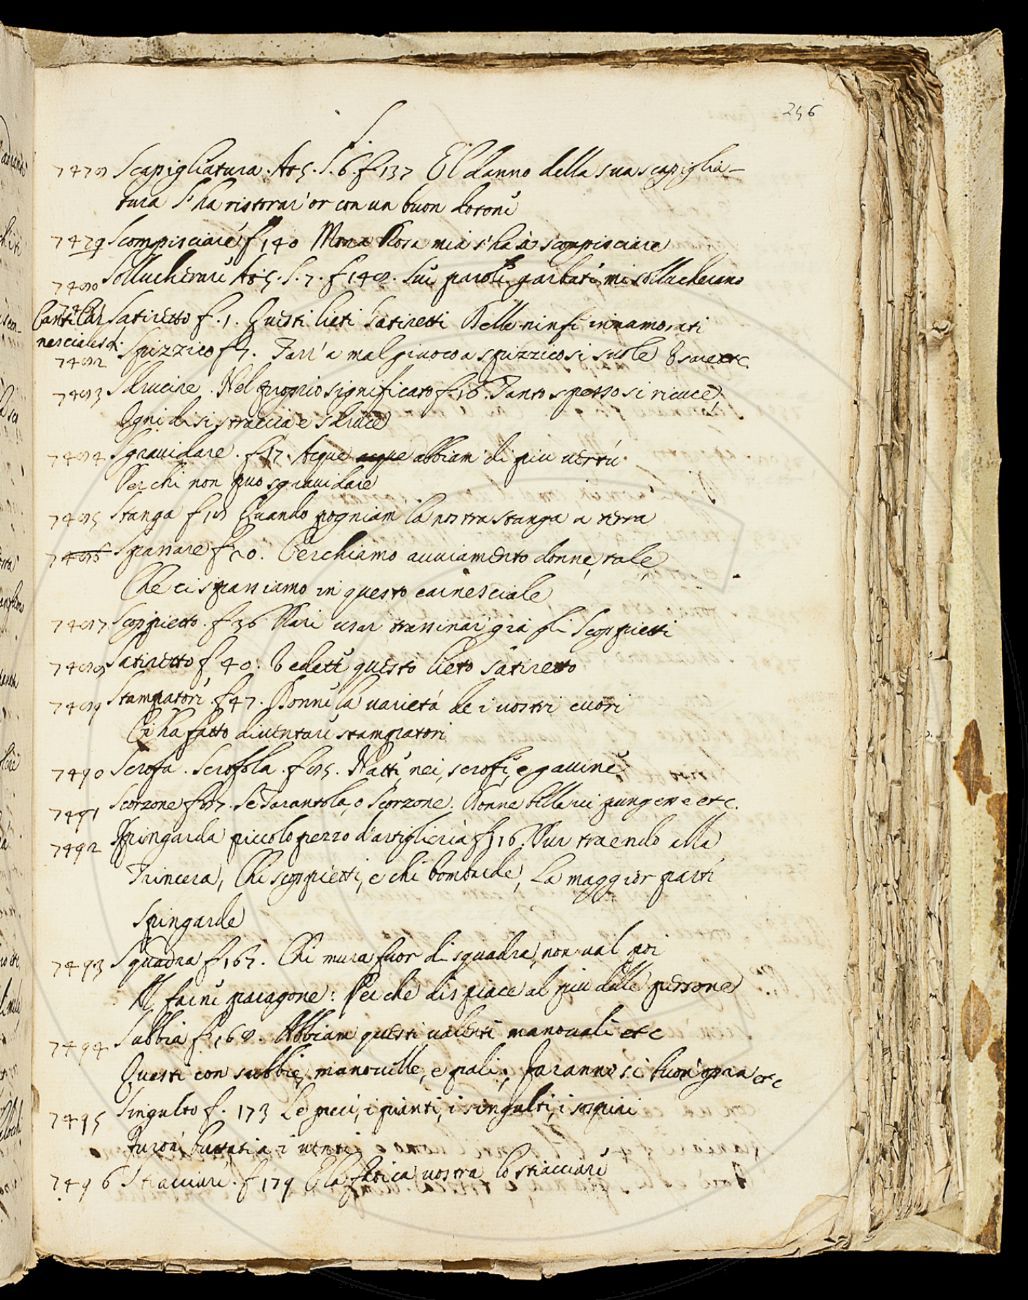 256
S.
7478 Scapigliatura. At 5. S. 6. f 137 E'l danno della sua scapiglia-
tura S'ha ristorar' or con un buon dotone
7479 Scompisciare f 140 Mona Rosa mia s'ha à scompisciare
7480 Sollucherare At 5. S. 7. f 148. Sue parole garbate mi sollucherano
7481
Canti Car Satiretto f. 1. Questi lieti Satiretti Delle ninfe innamorati
nescialeschi
7482 Spizzico f 7. Farr' a mal giuoco a spizzico si suole
7483 Sdrucire. Nel proprio significato f. 16. Tanto spesso si ricuce
Ogni di si straccia e sdruce
7484 Sgravidare. f 17. Acque acque abbiam di piu vertù
Per chi non puo sgravidare
7485 Stanga f 18 Quando pogniam la nostra stanga a terra
7486 Spassare f 20. Cerchiamo avviamento donne, tale,
Che ci spassiamo in questo carnesciale
7487 Scoppietto. f 36 usar trassinar gia gli Scoppietti
7488 Satiretto f 40. Vedete questo lieto Satiretto
7489 Stampatori f 47. Donne la varietà de i vostri cuori
Ci ha fatto diventare stampatori
7490 Scrofa. Scrofola. f 85. Natte, nei, scrofe, e gavine
7491 Scorzone f 87. Se Tarantola, o Scorzone. Donne belle vi pungere etc.
7492 Spingarda piccolo pezzo d'artiglieria f 116. Pur traendo alla
Trincera, Chi scoppietti, e chi bombarde, La maggior parte
Spingarde
7493 Squadra f 167. Chi mura fuor di squadra, non val poi
Il farne paragone: Perche dispiace al piu delle persone
7494 Subbia f 168. Abbiam questi valenti manovali etc
Questi con subbie, manovelle, e pali, Faranno si buon' opra etc
7495 Singulto f. 173 Le preci, i pianti, i singulti, i sospiri
Furon' buttati a i venti
7496 Stacciare. f 179 E la fatica nostra lo stacciare